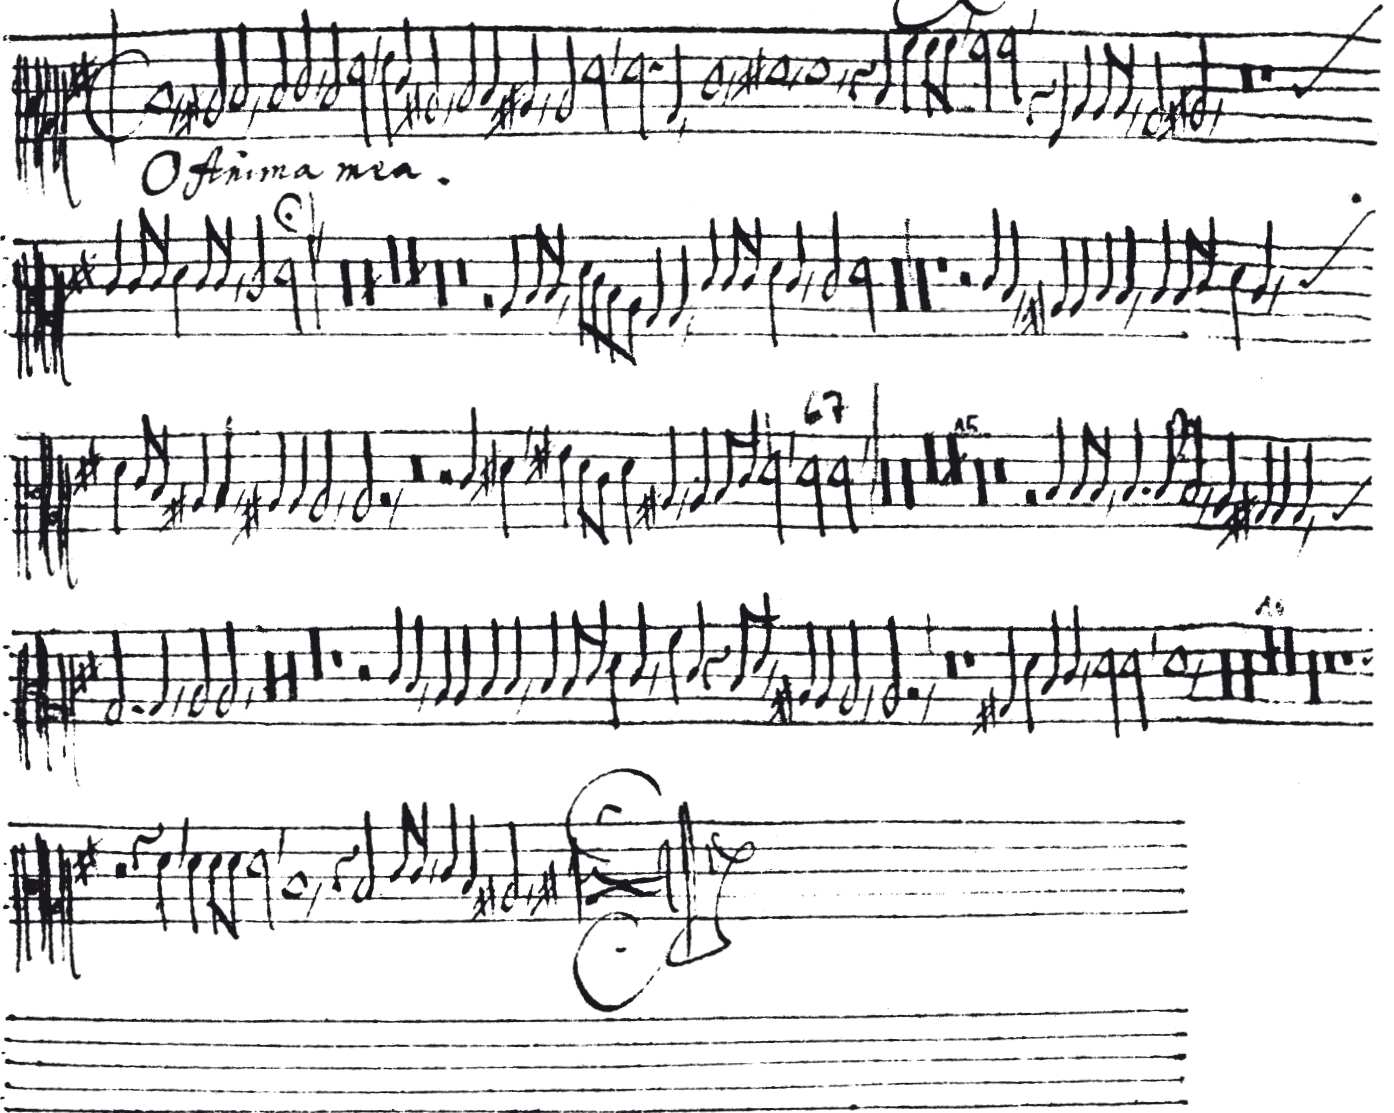 O Anima mea.
67
15
16